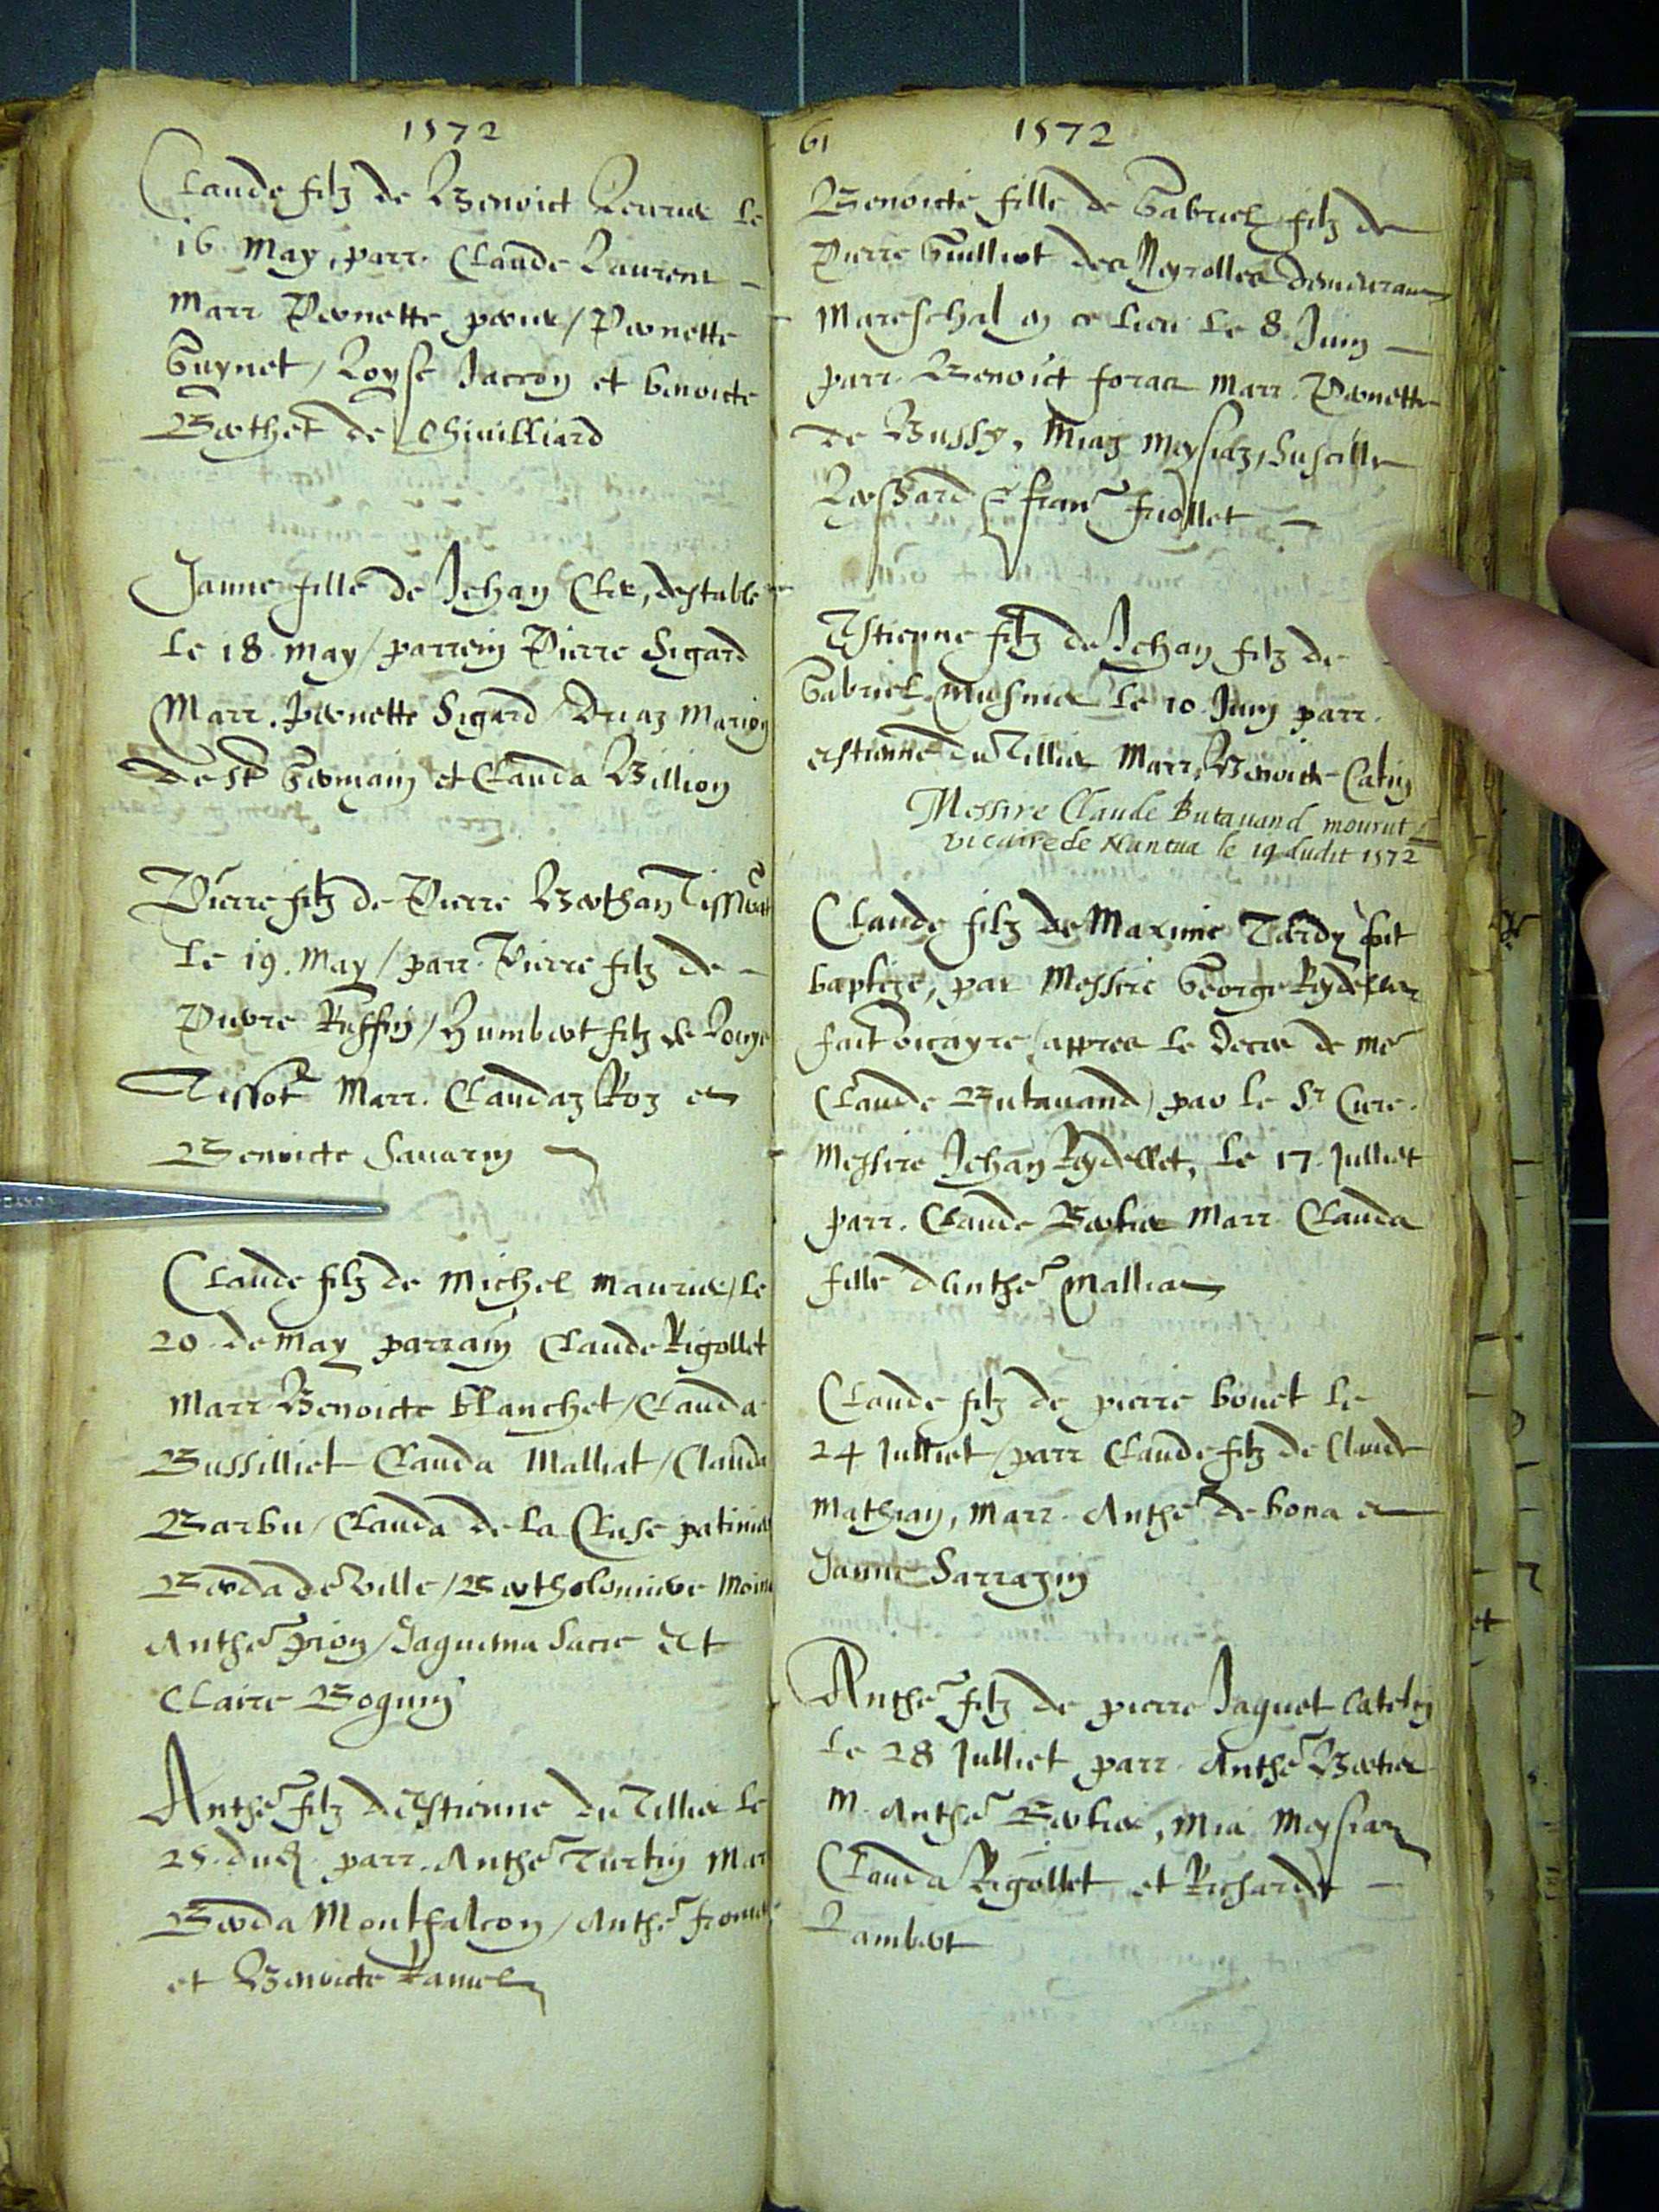 1572
Claude filz de Benoict Levrier le
16 May, parr. Claude Laurent
Marr Pernette / Pernette
Guynet / Loyse Jacron et Benoicte
Berthet de Chivilliard
Janne fille de Jehan Cler, destable
Le 18 may / parrein Pierre Sigard
Marr. Pernette Sigard / Marion
de St Germain et Clauda Billion
Pierre filz de Pierre Berthan Tissot
Le 19. May / parr. Pierre filz de
Pierre Ruffin / Humbert filz de
Tissot Marr. Claudaz Roz et
Benoicte Savarin
Claude filz de Michel Maurier / le
20 de May parrain Claude Rigollet
Marr Benoicte Blanchet / Clauda
Bussilliet Clauda Malliat / Clauda
Barbu / Clauda de la Cluse
Berda de ville / Bertholomieve
Anthe Pion / Jaquema Sacre Et
Claire Bogum
Anthe filz destienne du Tillier le
25. dud. parr. Anthe Turtin Mar
Berda Montfalcon / Anthe
et Benoicte Ramel
61 1572
Benoicte fille de Gabriel filz de
Pierre Guilliot des Neyrolles demeurant
Mareschal en ce lieu le 8 Juin
parr. Benoict foraz Marr. Pernette
de Bussy, Miaz Meysiaz,
et Fran
Estienne filz de Jehan filz de
Gabriel Musnier le 10 Juin parr.
estienne du Tillier Marr. Benoicte Catin
Messire Claude Butavand mourut
vicaire de Nantua le 19 dudit 1572
Claude filz de Maxime Tardy fut
baptizé, par Messire George Reydellet
fait vicayre (appres le deces de mre
Claude Butavand) par le Sr Cure.
Messire Jehan Reydellet, Le 17 Julliet
parr. Claude Bertier Marr. Clauda
fille dAnthe Mallian
Claude filz de pierre bouet le
24 Julliet / parr Claude filz de Claude
Mathian, Marr. Anthe de bona et
Janne Sarrazin
Anthe filz de pierre Jaquet Catelin
Le 28 Julliet parr. Anthe Bertier
M. Anthe Bertier, Mia Meysiaz
Clauda Rigollet et Richarde
Lambert